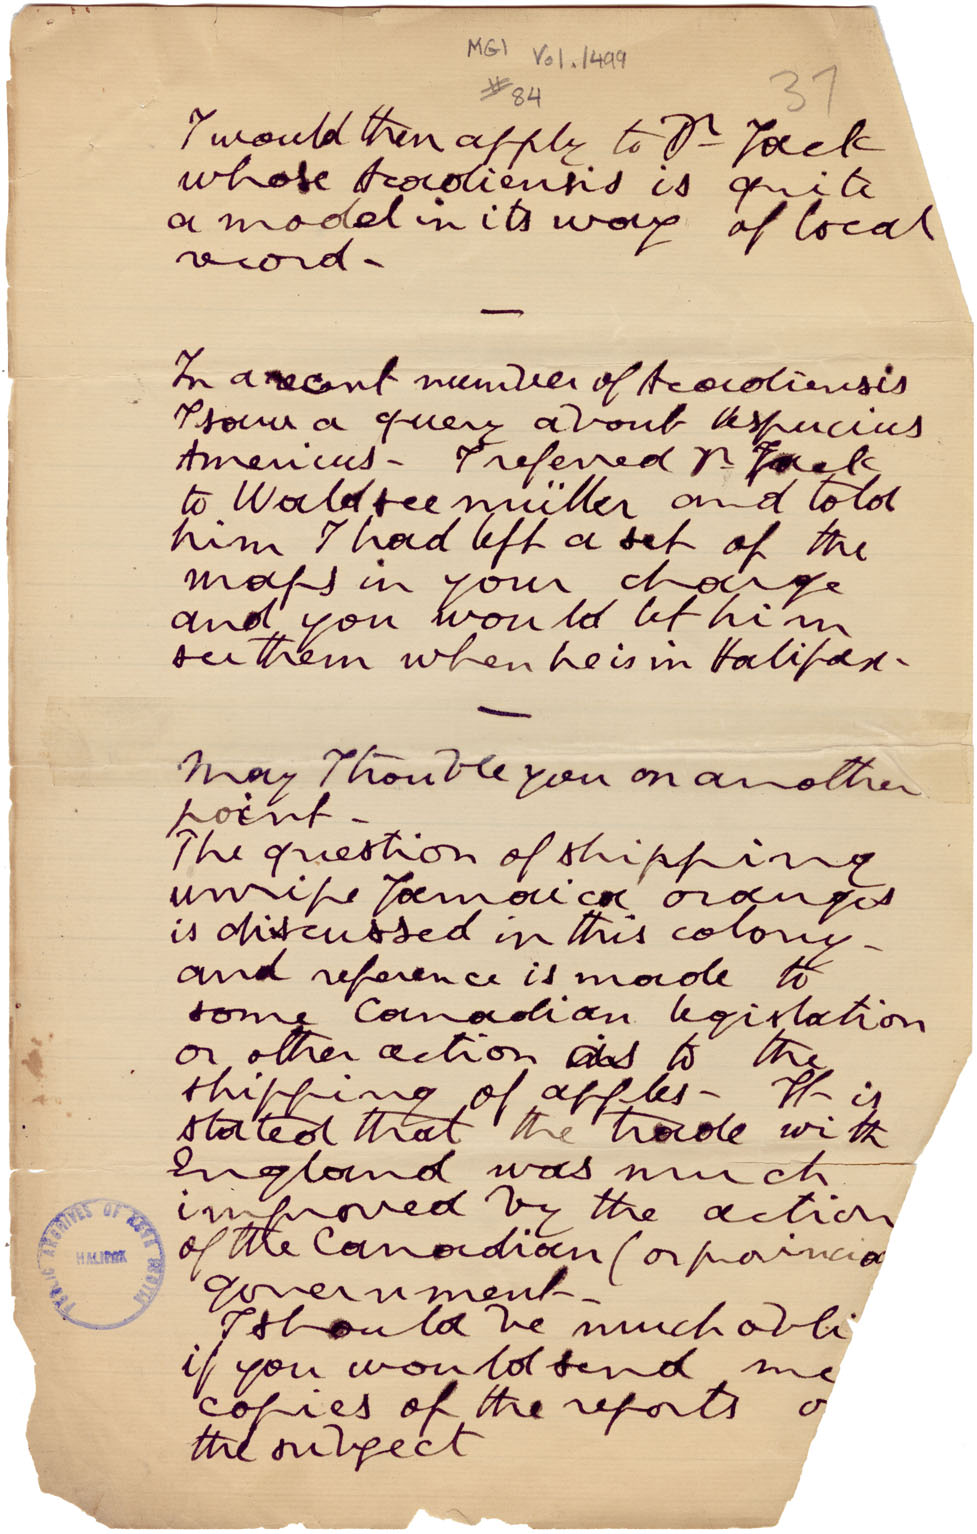 MG1 Vol. 1499
#84
37
I would then apply to Dr Jack
whose Acadiensis is quite
a model in its way of local
record -
In a recent number of Acadiensis
I saw a query about Vespucius
Americus - I referred Dr Jack
to Waldseemüller and told
him I had left a set of the
maps in your charge
and you would let him
see them when he is in Halifax -
May I trouble you on another
point -
The question of shipping
unripe Jamaica oranges
is discussed in this colony -
and reference is made to
some Canadian legislation
or other action as to the
shipping of apples - It is
stated that the trade with
England was much
improved by the action
of the Canadian (or provincia
government -
I should be much obli
if you would send me
copies of the reports o
the subject
PUBLIC ARCHIVES OF NOVA SCOTIA
HALIFAX